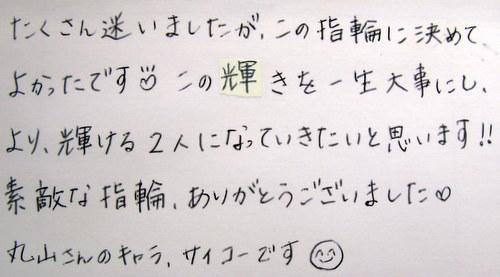 たくさん迷いましたが、この指輪に決めて
よかったです この輝きを一生大事にし、
より、輝ける2人になっていきたいと思います!!
素敵な指輪、ありがとうございました♡
丸山さんのキャラ、サイコーです